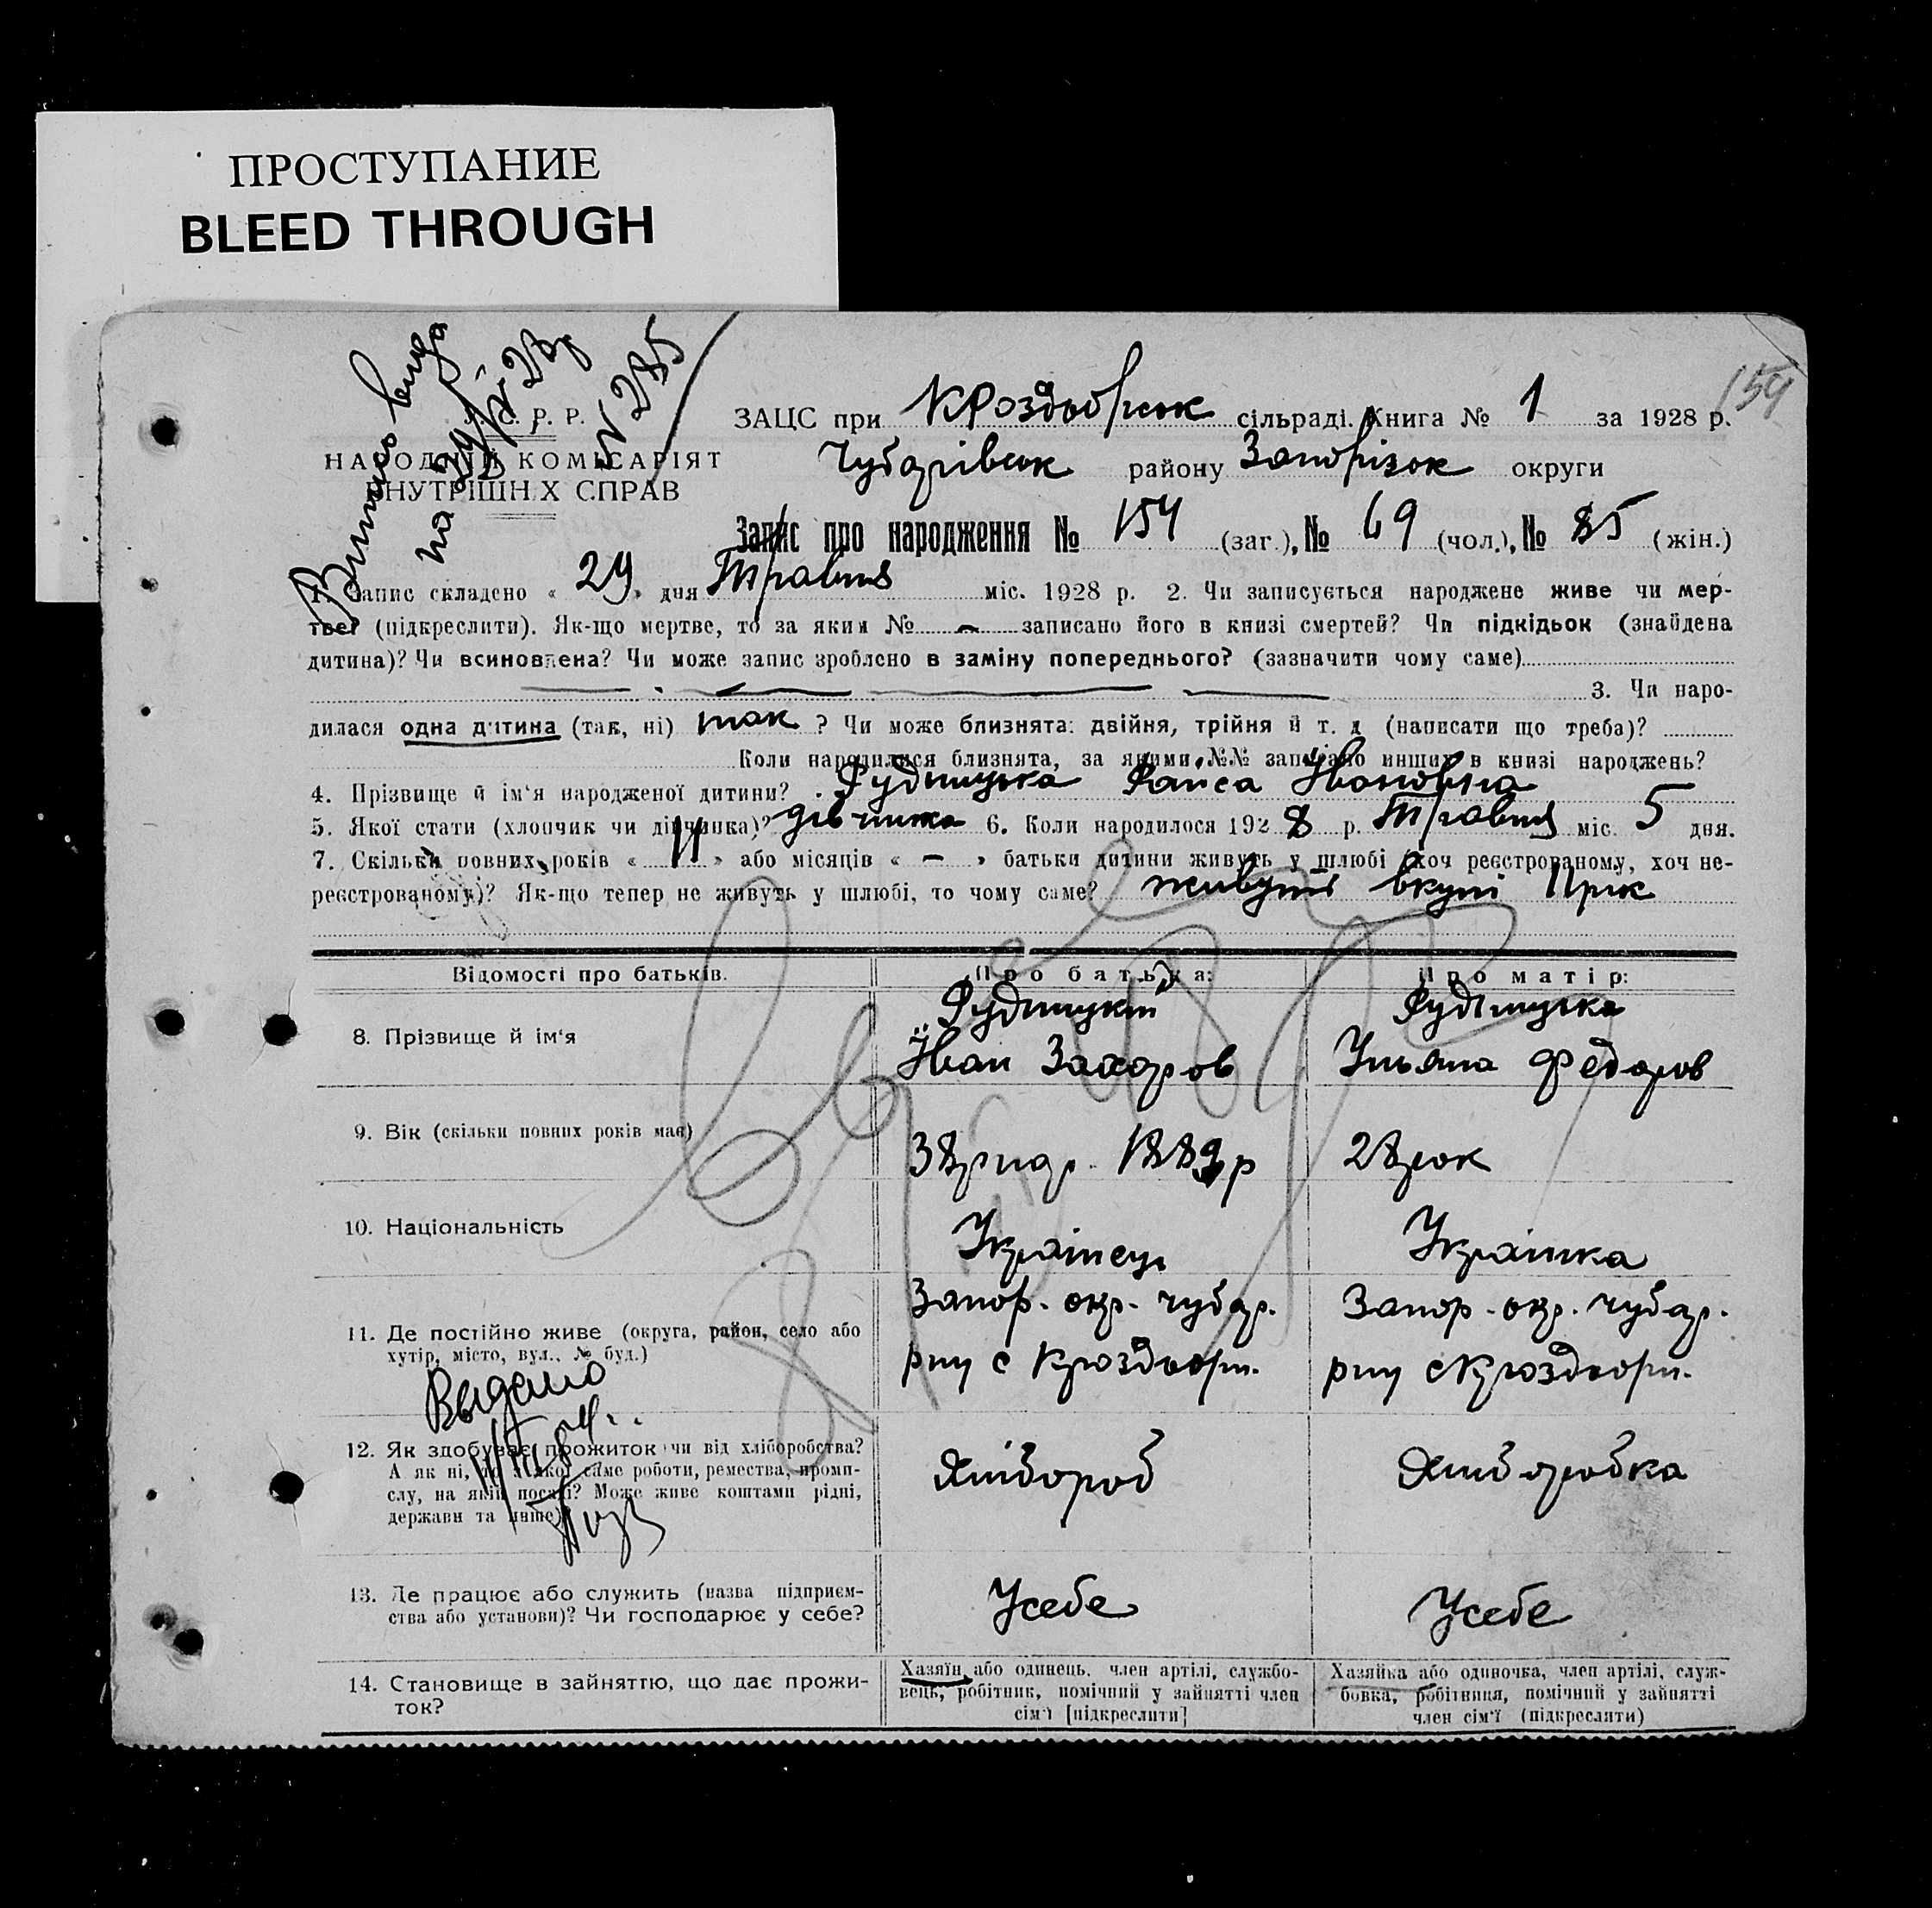 ПРОСТУПАНИЕ
BLEED THROUGH
154
Р. Р.
НАРОДНІЙ КОМІСАРІЯТ
ВНУТРІШНІХ СПРАВ
на
N 285
ЗАЦС при сільраді. Книга № 1 за 1928 р.
Чубарівськ району Запорізок округи
Запис про народження № 154 (заг.), № 69 (чол.), № 85 (жін.)
1. Запис складено « 29 » дня Травня міс. 1928 р. 2. Чи записується народжене живе чи мер-
тве? (підкреслити). Як-що мертве, то за яким № — записано його в книзі смертей? Чи підкідьок (знайдена
дитина)? Чи всиновлена? Чи може запис зроблено в заміну попереднього? (зазначити чому саме)
3. Чи наро-
дилася одна дитина (так, ні) так ? Чи може близнята: двійня, трійня й т. д (написати що треба)?
Коли народилися близнята, за якими №№ записано инших в книзі народжень?
4. Прізвище й ім'я народженої дитини? Рудницька Раїса Івановна
5. Якої стати (хлопчик чи дівчинка)? дівчинка 6. Коли народилося 1928 р. Травня міс. 5 дня.
7. Скільки повних років « 11 » або місяців « — » батьки дитини живуть у шлюбі (хоч реєстрованому, хоч не-
реєстрованому)? Як-що тепер не живуть у шлюбі, то чому саме? живуть вкупі 11рік
Відомості про батьків. Про батька: Про матір:
8. Прізвище й ім'я
Рудницкий
Іван Захаров
Рудницька
Ульяна Федоров
9. Вік (скільки повних років має)
38 1889р
28рок
10. Національність
Українец
Українка
11. Де постійно живе (округа, район, село або
хутір, місто, вул., № буд.)
Запор. окр. чубар.
рну с Кроздвори.
Запор. окр. чубар.
рну с Кроздвори.
Выдано
12. Як здобуває прожиток чи від хліборобства?
А як ні, то з якої саме роботи, ремества, проми-
слу, на якій посаді? Може живе коштами рідні,
держави та инше)
Хлібороб
Хлиборобка
13. Де працює або служить (назва підприєм-
ства або установи)? Чи господарює у себе?
Усебе
Усебе
14. Становище в зайняттю, що дає прожи-
ток?
Хазяїн або одинець, член артілі, службо-
вець, робітник, помічний у зайнятті член
сім'ї [підкреслити]
Хазяйка або одиночка, член артілі, служ-
бовка, робітниця, помічний у зайнятті
член сім'ї (підкреслити)